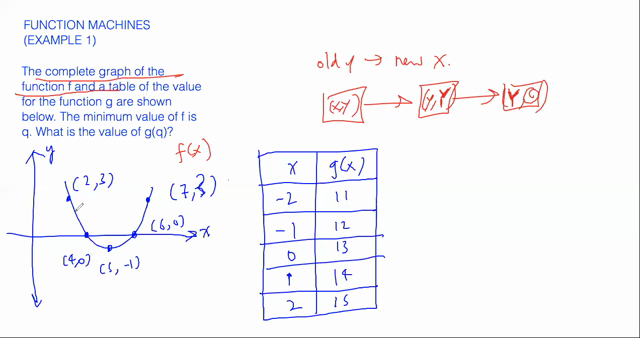 FUNCTION MACHINES
(EXAMPLE 1)
The complete graph of the
function f and a table of the value
for the function g are shown
below. The minimum value of f is
q. What is the value of g(q)?
old y → new x.
(x,y) → (y,Y) → (Y,
y
f(x)
(2,3)
(7,3)
(6,0)
x
(4,0)
(5,-1)
x g(x)
-2 11
-1 12
0 13
1 14
2 15